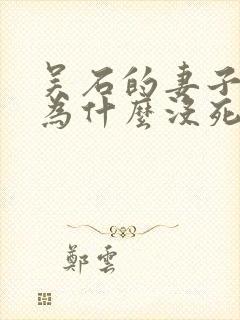 吴石的妻子
為什麼沒死
鄭雲